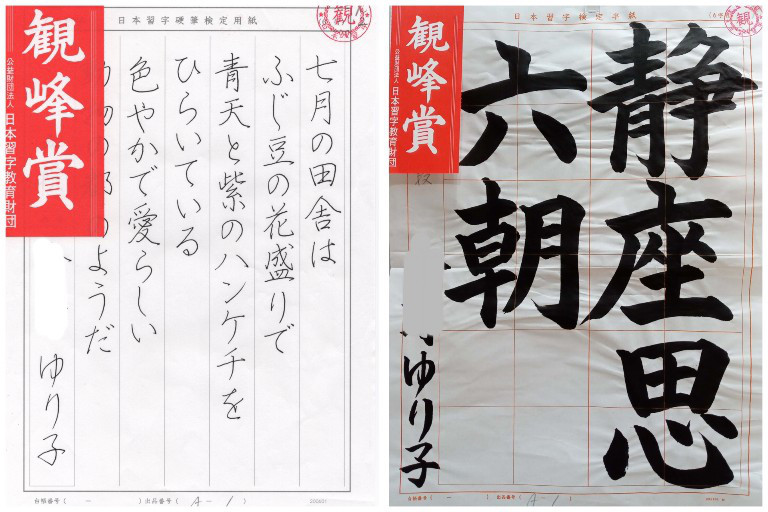 日本習字硬筆検定用紙
観
観峰賞
公益財団法人 日本習字教育財団
七月の田舎は
ふじ豆の花盛りで
青天と紫のハンケチを
ひらいている
色やかで愛らしい
のようだ
ゆり子
台帳番号( - )出品番号( A-1 )
日本習字検定半紙
観
観峰賞
公益財団法人 日本習字教育財団
静座思
六朝
ゆり子
台帳番号( - ) 出品番号( A-1 )